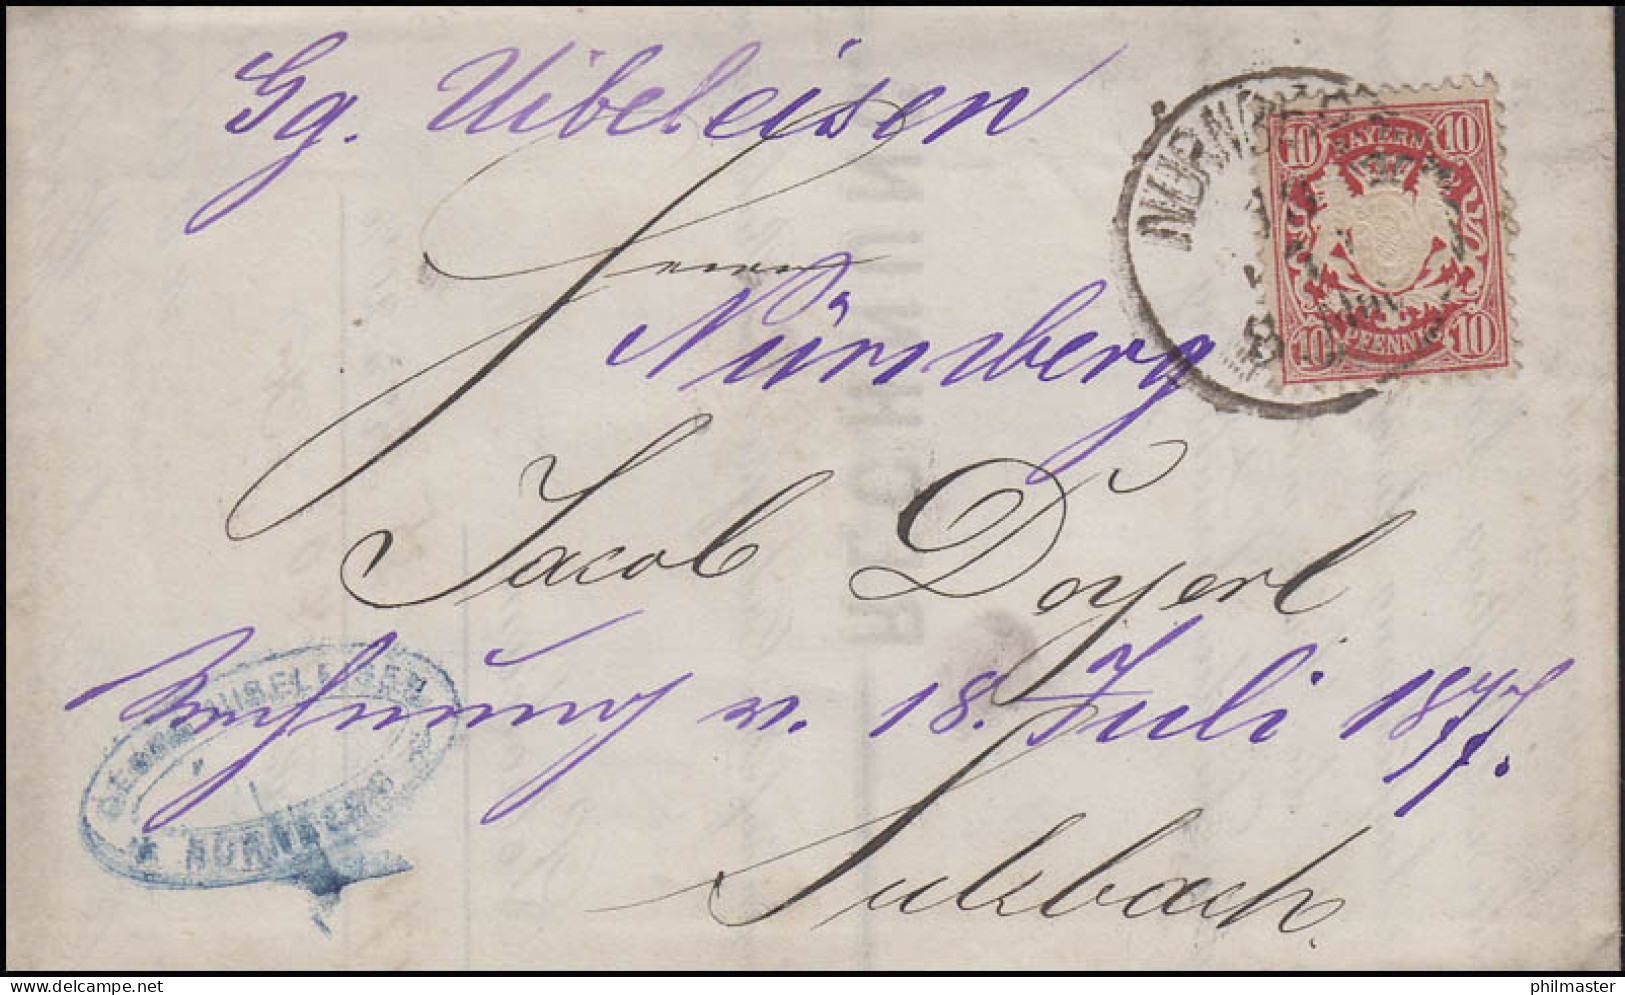 Gg. Uibeleisen
NÜRNBERG
10 BAYERN 10
10 PFENNIG 10
Herrn
Nürnberg
Jacob Doyerl
Rechnung v. 18. Juli 1877.
GEORG UIBELEISEN
NÜRNBERG
Sulzbach.
RECHNUN
www.delcampe.net
philmaster